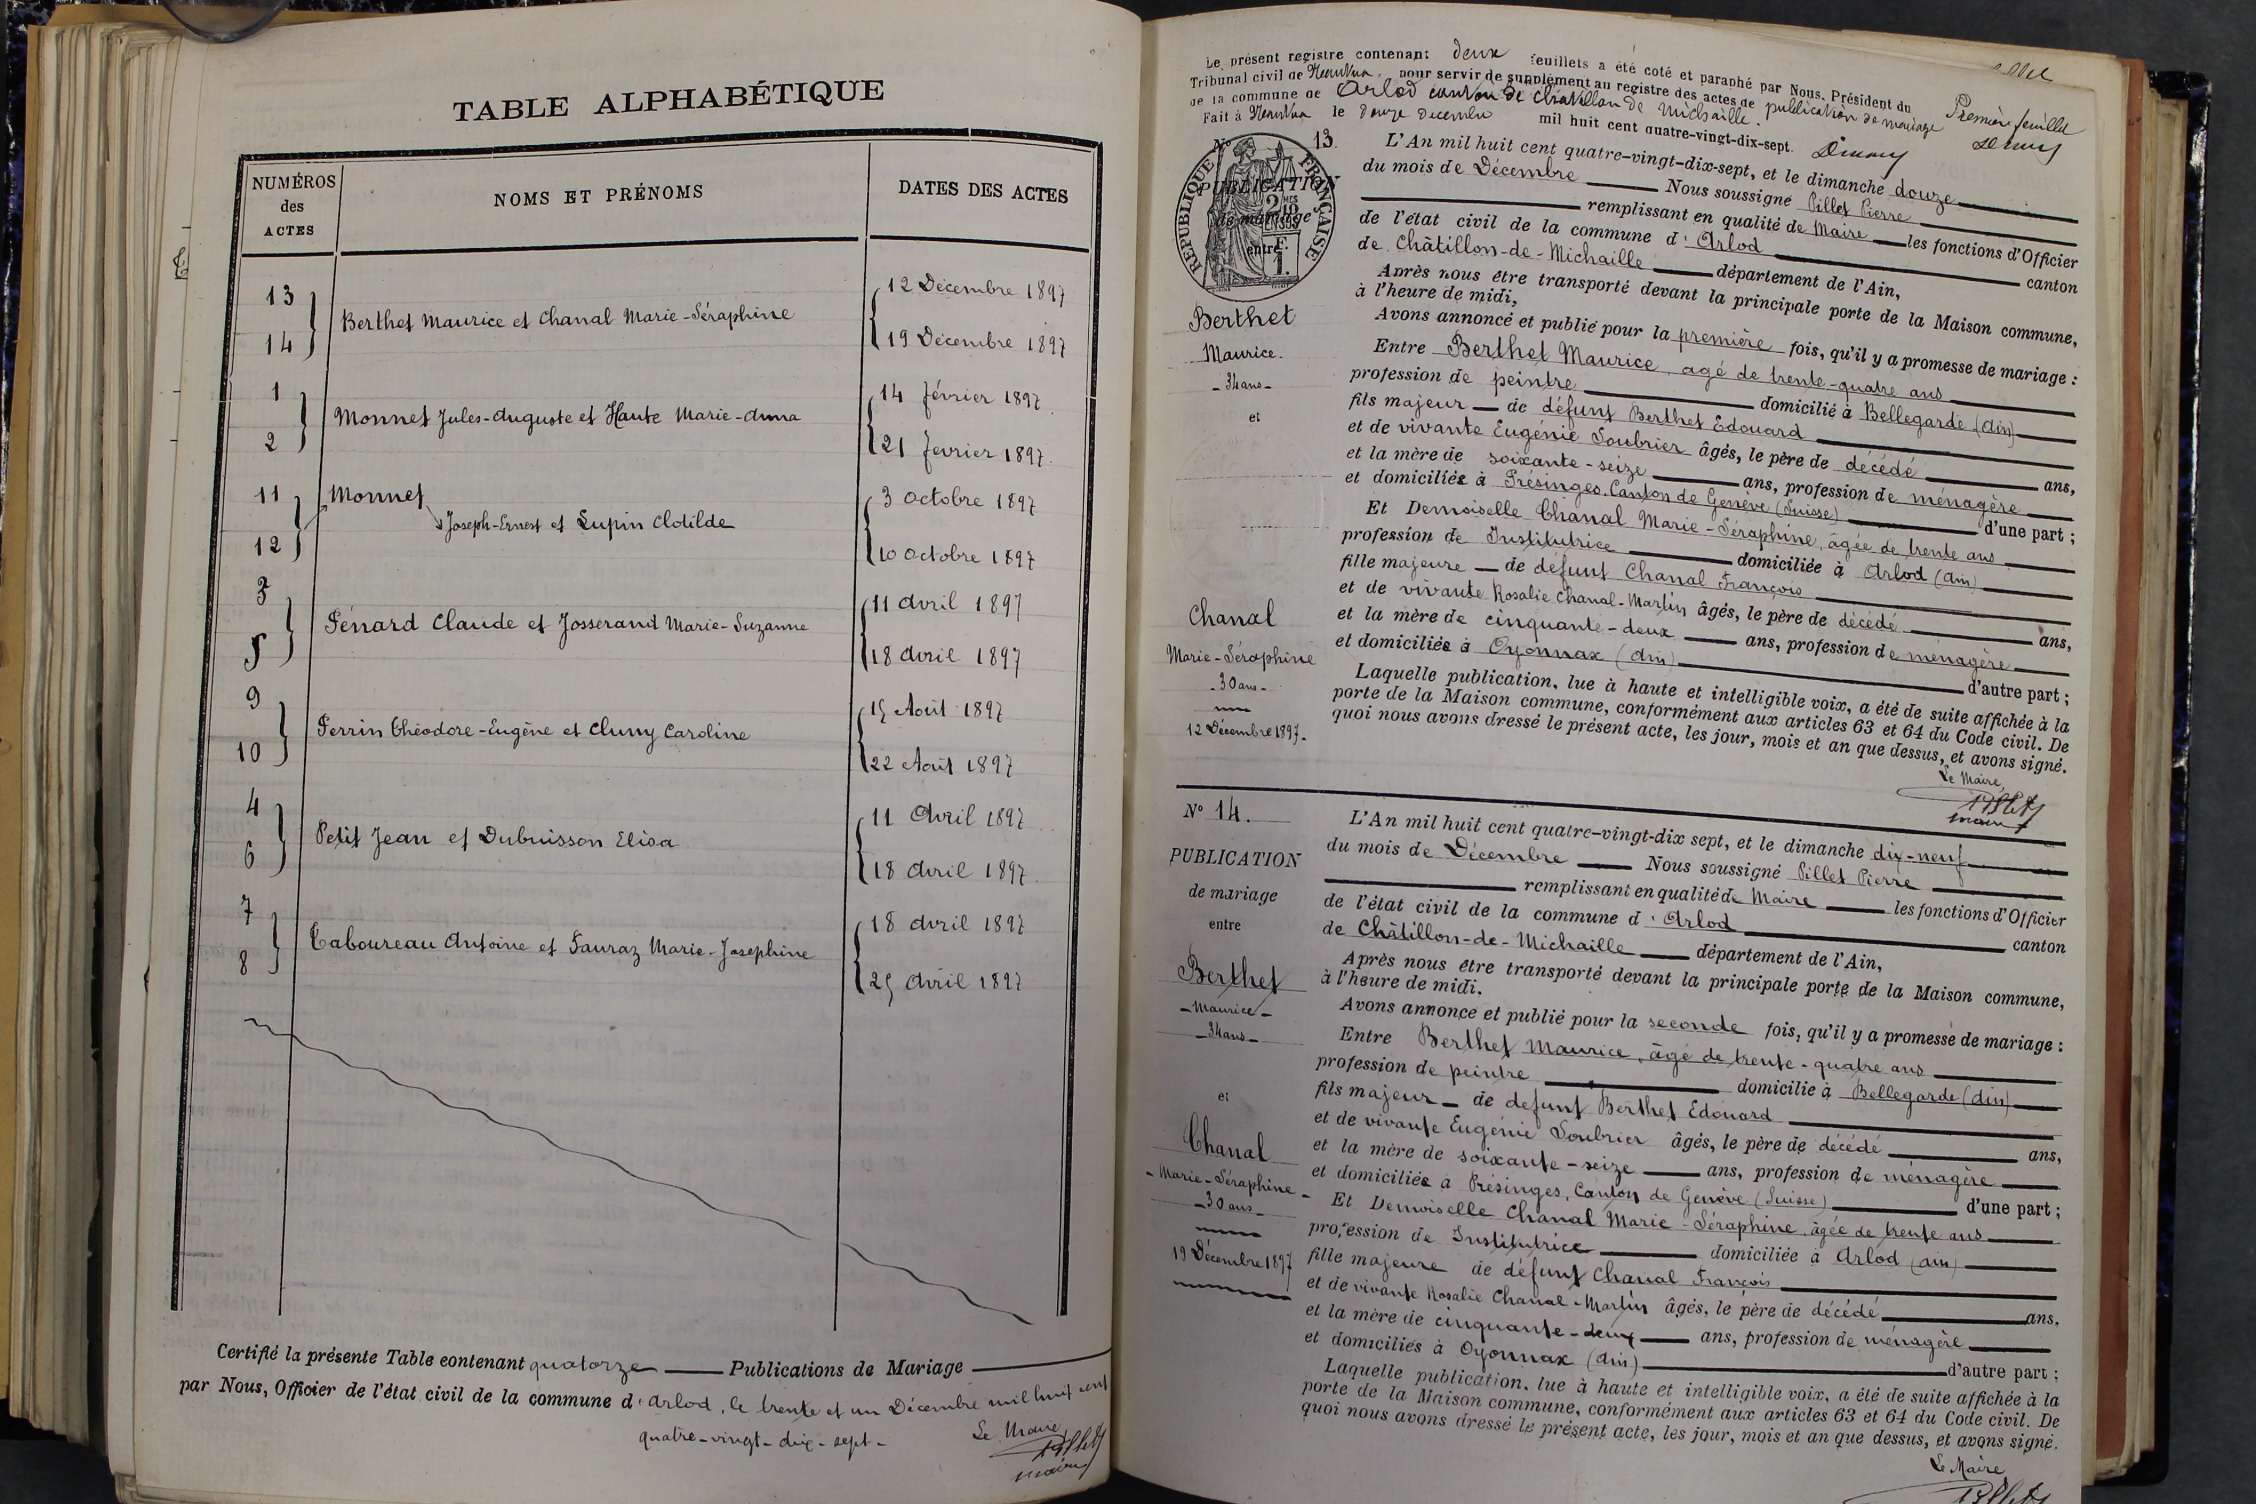 TABLE ALPHABÉTIQUE
NUMÉROS
des
ACTES
NOMS ET PRÉNOMS
DATES DES ACTES
13
14
Berthet Maurice et Chanal Marie-Séraphine
12 Décembre 1897
19 Décembre 1897
1
2
Monnet Jules-Auguste et Haute Marie-Anna
14 février 1897
21 février 1897.
11
12
Monnet
Joseph-Ernest et Lupin Clotilde
3 octobre 1897
10 octobre 1897
3
5
Pénard Claude et Josserand Marie-Suzanne
11 Avril 1897
18 Avril 1897
9
10
Perrin Théodore-Eugène et Cluny Caroline
15 Août 1897
22 Août 1897
4
6
Petit Jean et Dubuisson Elisa
11 Avril 1897
18 Avril 1897
7
8
Taboureau Antoine et Fauraz Marie-Josephine
18 Avril 1897
25 Avril 1897
Certifié la présente Table contenant quatorze Publications de Mariage
par Nous, Officier de l'état civil de la commune d'Arlod, le trente et un Décembre mil huit cent
quatre-vingt-dix-sept-
Le Maire
Pillet
maire
Le présent registre contenant deux feuillets a été coté et paraphé par Nous, Président du
Tribunal civil de Nantua, pour servir de supplément au registre des actes de publication de mariage
de la commune de Arlod canton de Châtillon de Michaille.
Fait à Nantua le douze Decembre mil huit cent quatre-vingt-dix-sept.
Premier feuillet
No 13.
RÉPUBLIQUE FRANÇAISE
PUBLICATION
de mariage
entre
Berthet
Maurice.
-34 ans-
et
Chanal
Marie-Séraphine
-30 ans-
12 Décembre 1897.
L'An mil huit cent quatre-vingt-dix-sept, et le dimanche douze
du mois de Décembre Nous soussigné Pillet Pierre
remplissant en qualité de Maire les fonctions d'Officier
de l'état civil de la commune d'Arlod canton
de Châtillon-de-Michaille département de l'Ain,
Après nous être transporté devant la principale porte de la Maison commune,
à l'heure de midi,
Avons annoncé et publié pour la première fois, qu'il y a promesse de mariage :
Entre Berthet Maurice, agé de trente-quatre ans
profession de peintre domicilié à Bellegarde (Ain)
fils majeur de défunt Berthet Edouard
et de vivante Eugénie Soubrier âgés, le père de décédé ans,
et la mère de soixante-seize ans, profession de ménagère
et domiciliée à Présinges, Canton de Genève (Suisse) d'une part ;
Et Demoiselle Chanal Marie-Séraphine, âgée de trente ans
profession de Institutrice domiciliée à Arlod (Ain)
fille majeure de défunt Chanal François
et de vivante Rosalie Chanal-Martin âgés, le père de décédé ans,
et la mère de cinquante-deux ans, profession de ménagère
et domiciliée à Oyonnax (Ain) d'autre part ;
Laquelle publication, lue à haute et intelligible voix, a été de suite affichée à la
porte de la Maison commune, conformément aux articles 63 et 64 du Code civil. De
quoi nous avons dressé le présent acte, les jour, mois et an que dessus, et avons signé.
Le Maire,
Pillet
maire
No 14.
PUBLICATION
de mariage
entre
Berthet
-Maurice-
-34 ans-
et
Chanal
-Marie-Séraphine-
-30 ans-
19 Décembre 1897
L'An mil huit cent quatre-vingt-dix sept, et le dimanche dix-neuf
du mois de Décembre Nous soussigné Pillet Pierre
remplissant en qualité de Maire les fonctions d'Officier
de l'état civil de la commune d'Arlod canton
de Châtillon-de-Michaille département de l'Ain,
Après nous être transporté devant la principale porte de la Maison commune,
à l'heure de midi.
Avons annoncé et publié pour la seconde fois, qu'il y a promesse de mariage :
Entre Berthet Maurice, âgé de trente-quatre ans
profession de peintre domicilié à Bellegarde (Ain)
fils majeur de défunt Berthet Edouard
et de vivante Eugénie Soubrier âgés, le père de décédé ans,
et la mère de soixante-seize ans, profession de ménagère
et domiciliée à Présinges, Canton de Genève (Suisse) d'une part ;
Et Demoiselle Chanal Marie-Séraphine, âgée de trente ans
profession de Institutrice domiciliée à Arlod (Ain)
fille majeure de défunt Chanal François
et de vivante Rosalie Chanal-Martin âgés, le père de décédé ans,
et la mère de cinquante-deux ans, profession de ménagère
et domiciliés à Oyonnax (Ain) d'autre part ;
Laquelle publication, lue à haute et intelligible voix, a été de suite affichée à la
porte de la Maison commune, conformément aux articles 63 et 64 du Code civil. De
quoi nous avons dressé le présent acte, les jour, mois et an que dessus, et avons signé.
Le Maire
Pillet